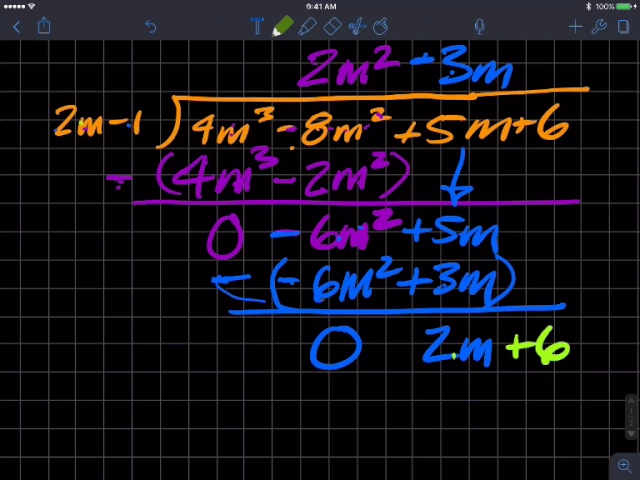 9:41 AM
100%
2m² - 3m
2m - 1 ) 4m³ - 8m² + 5m + 6
- (4m³ - 2m²)
0 - 6m² + 5m
- (- 6m² + 3m)
0 2m + 6